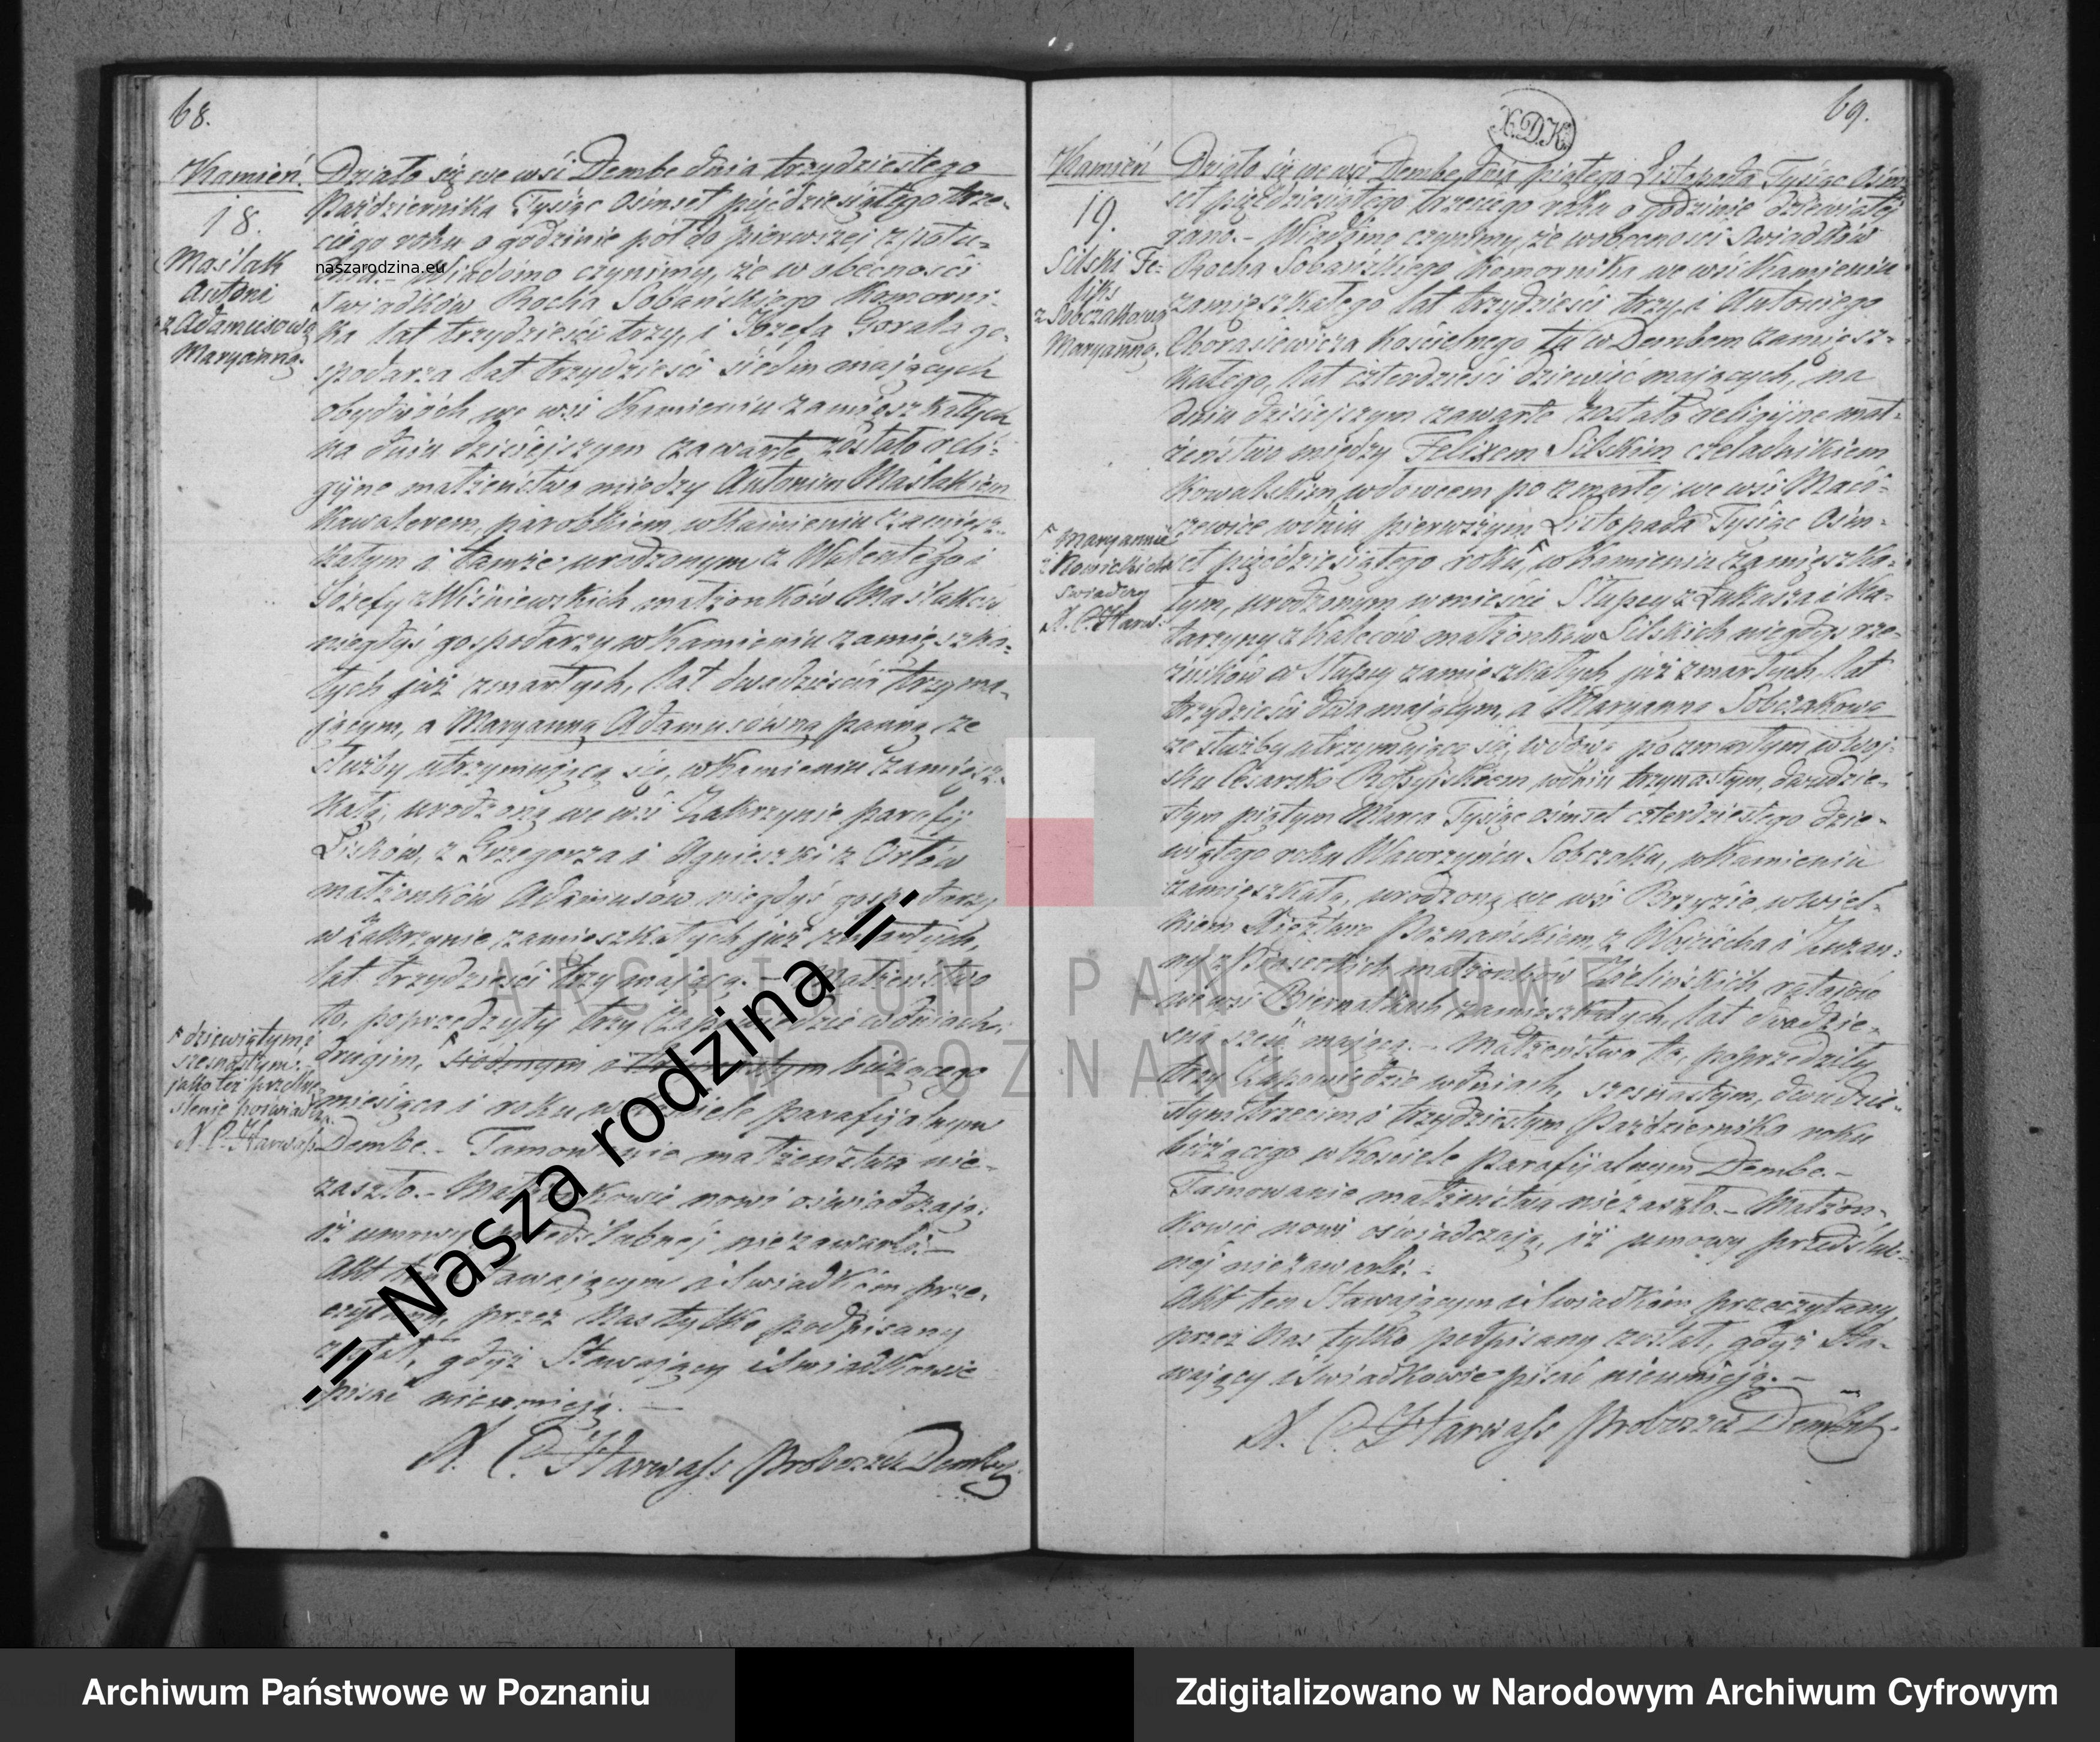 68.
Kamień.
18.
Maślak
Antoni
z Adamusową
Maryanną.
Działo się we wsi Dembe dnia trzydziestego
Października Tysiąc Ośmset pięćdziesiątego trze-
ciego roku o godzinie pół do pierwszej z połu-
dnia.- Wiadomo czynimy, że w obecności
Świadków Rocha Sobańskiego Komorni-
ka lat trzydzieści trzy, i Józefa Górala go-
spodarza lat trzydzieści siedm mających
obydwóch we wsi Kamieniu zamieszkałych
na dniu dzisiejszym zawarte zostało reli-
gijne małżeństwo między Antonim Maślakiem
Kawalerem, parobkiem, w Kamieniu zamiesz-
kałym i tamże urodzonym z Walentego i
Józefy z Wiśniewskich małżonków Maślaków
niegdyś gospodarzy w Kamieniu zamieszka-
łych już zmarłych, lat dwadzieścia trzy ma-
jącym, a Maryanną Adamusówną panną, ze
służby utrzymującą się, w Kamieniu zamiesz-
kałą, urodzoną we wsi Zakrzynie parafij
Lisków, z Grzegorza i Agnieszki z Orłów
małżonków Adamusów niegdyś gospodarzy
w Zakrzynie zamieszkałych już zmarłych,
lat trzydzieści trzy mającą.- Małżeństwo
to, poprzedziły trzy Zapowiedzie w dniach:
drugim, siódmym i trzynastym bieżącego
miesiąca i roku w Kościele parafijalnym
Dembe.- Tamowanie małżeństwa nie-
zaszło.- Małżonkowie nowi oświadczają:
iż umowy przedślubnej nie zawarli.-
Akt ten Stawającym i Świadkom prze-
czytany, przez Nas tylko podpisany
został, gdyż Stawający i Świadkowie
pisać nieumieją.-
dziewiątym i
szesnastym:
jako też przekre-
ślenie poświad-
X. C. Harwass
X. C. Harwass Proboszcz Dembski
naszarodzina.eu
.:: Nasza rodzina ::.
X.D.K.
69.
Kamień
19.
Silski Fe-
liks
z Sobczakową
Maryanną.
Działo się we wsi Dembe dnia piątego Listopada Tysiąc Ośm-
set pięćdziesiątego trzeciego roku o godzinie dziewiątej
z rana.- Wiadomo czynimy, że w obecności Świadków
Rocha Sobańskiego, Komornika we wsi Kamieniu
zamieszkałego lat trzydzieści trzy, i Antoniego
Chorasiewicza Kościelnego tu w Dembem zamiesz-
kałego, lat czterdzieści dziewięć mających, na
dniu dzisiejszym zawarte zostało religijne mał-
żeństwo między Felixem Silskim czeladnikiem
Kowalskim, wdowcem po zmarłej we wsi
w dniu pierwszym Listopada Tysiąc Ośm-
set pięćdziesiątego roku, w Kamieniu zamieszka-
łym, urodzonym w mieście Słupcy z Łukasza i Ka-
tarzyny z małżonków Silskich niegdyś rze-
źników w Słupcy zamieszkałych już zmarłych, lat
trzydzieści dwa mającym, a Maryanną Sobczakową
ze służby utrzymującą się, wdową po zmarłym w woj-
sku Cesarsko Rossyjskiem w dniu trzynastym, dwudzie-
stym piątym Marca Tysiąc ośmset czterdziestego dzie-
wiątego roku Wawrzyńcu Sobczaku, w Kamieniu
zamieszkałą, urodzoną we wsi w Wiel-
kiem Xięztwie Poznańskiem, z Wojciecha i Zuzan-
ny z małżonków Zielińskich ratajów
we wsi Biernatkach zamieszkałych, lat dwadzie-
ścia sześć mającą.- Małżeństwo to, poprzedziły
trzy Zapowiedzie w dniach, szesnastym, dwudzie-
stym trzecim i trzydziestym Października roku
bieżącego w Kościele Parafijalnym Dembe.-
Tamowanie małżeństwa nie zaszło.- Małżon-
kowie nowi oświadczają, iż umowy przedślub-
nej nie zawarli.-
Akt ten Stawającym i Świadkom przeczytany
przez Nas tylko podpisany został, gdyż Sta-
wający i Świadkowie pisać nieumieją.-
Maryannie
z Nowickich
świadczy
X. C. Harw:
X. C. Harwass Proboszcz Dembski.
ARCHIWUM PAŃSTWOWE
W POZNANIU
Archiwum Państwowe w Poznaniu
Zdigitalizowano w Narodowym Archiwum Cyfrowym